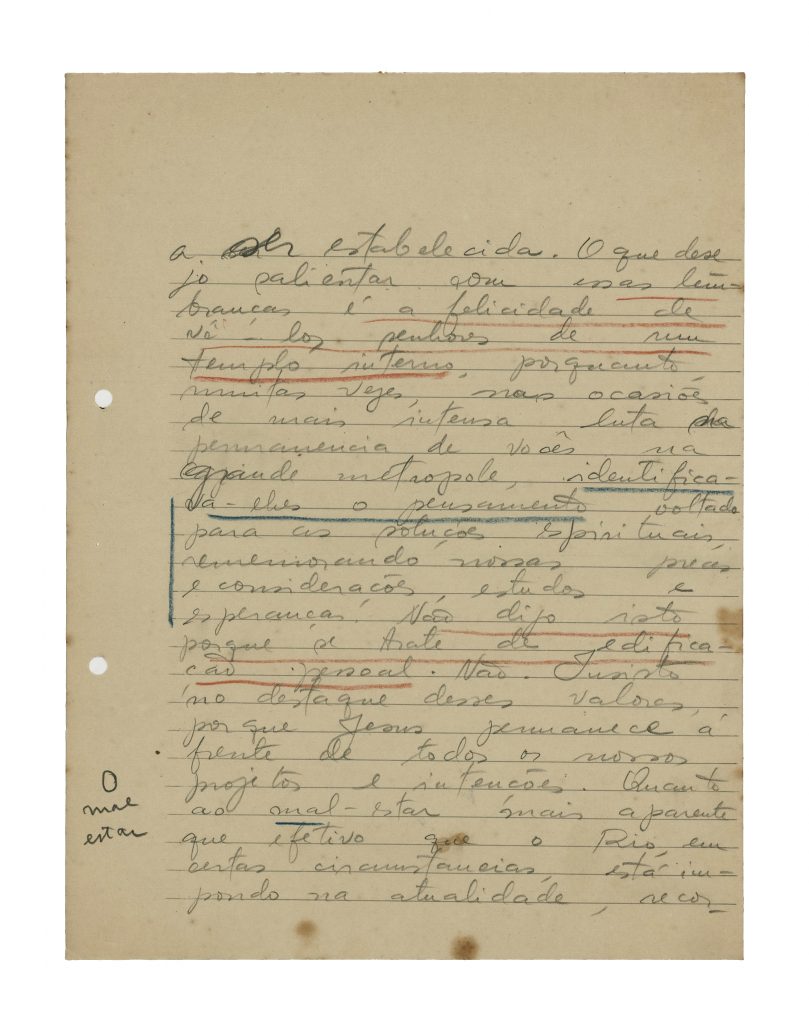 a ser estabelecida. O que dese
jo salientar com essas lem-
branças é a felicidade de
vê-los senhores de um
templo interno, porquanto,
muitas vezes, nas ocasiões
de mais intensa luta na
permanencia de vocês na
grande metropole, identifica-
va-lhes o pensamento voltado
para as soluções espirituais,
rememorando nossas preces
e considerações, estudos e
esperanças. Não digo isto
porque se trate de edifica-
cão pessoal. Não. Insisto
no destaque desses valores,
porque Jesus permanece á
frente de todos os nossos
projetos e intenções. Quanto
ao mal-estar mais aparente
que efetivo que o Rio, em
certas circunstancias, está im-
pondo na atualidade, recor-
O
mal
estar